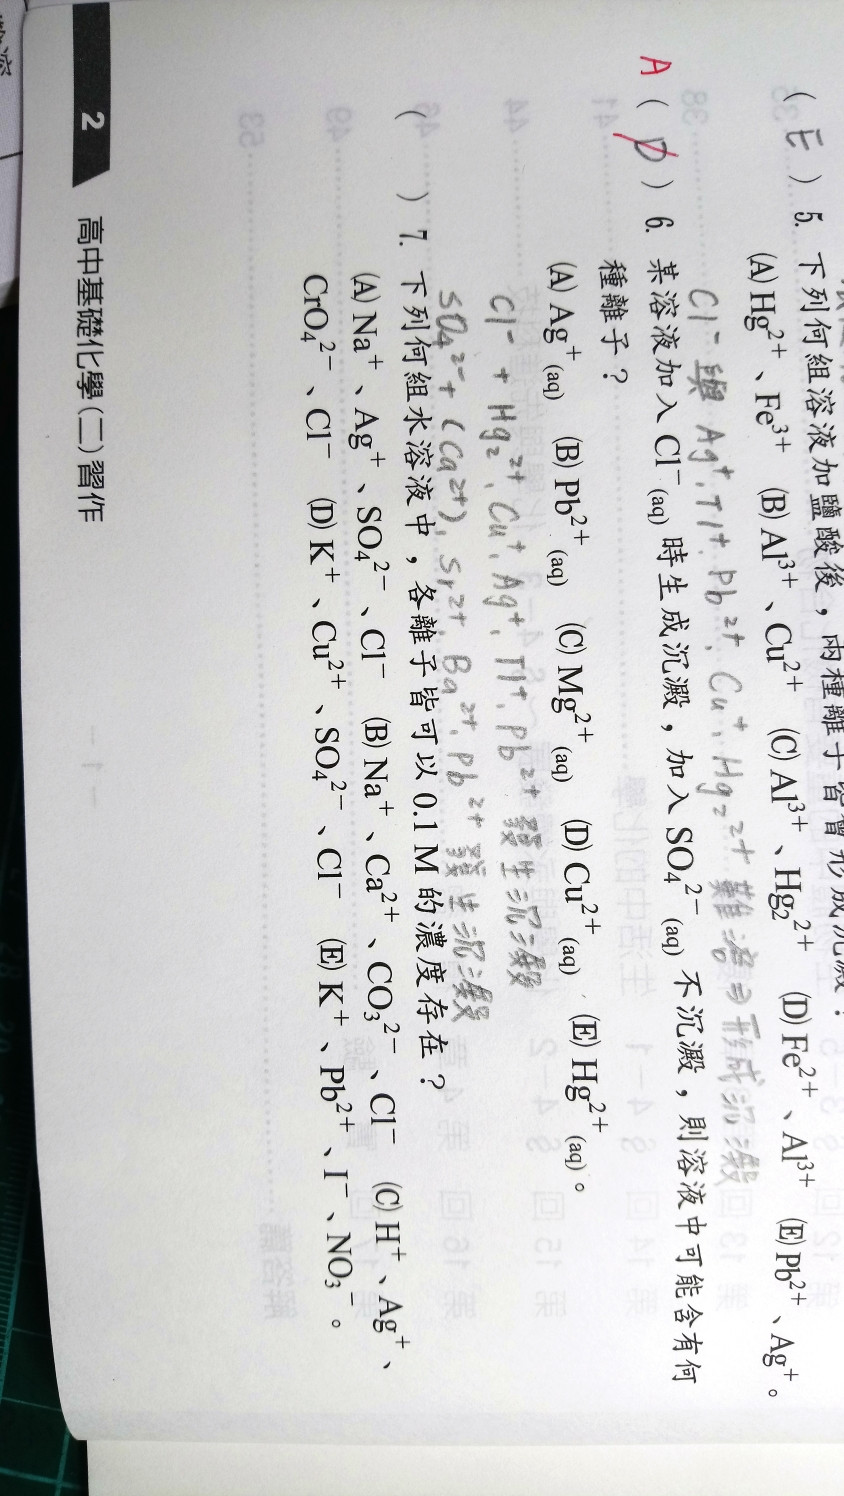 ( E ) 5. 下列何組溶液加鹽酸後，兩種離子皆會形成沉澱？
(A) Hg²⁺、Fe³⁺ (B) Al³⁺、Cu²⁺ (C) Al³⁺、Hg₂²⁺ (D) Fe²⁺、Al³⁺ (E) Pb²⁺、Ag⁺。
Cl⁻ 與 Ag⁺、Tl⁺、Pb²⁺、Cu⁺、Hg₂²⁺ 難溶 形成沉澱
A ( D ) 6. 某溶液加入 Cl⁻(aq) 時生成沉澱，加入 SO₄²⁻(aq) 不沉澱，則溶液中可能含有何
種離子？
(A) Ag⁺(aq) (B) Pb²⁺(aq) (C) Mg²⁺(aq) (D) Cu²⁺(aq) (E) Hg²⁺(aq)。
Cl⁻ + Hg₂²⁺、Cu⁺、Ag⁺、Tl⁺、Pb²⁺ 發生沉澱
SO₄²⁻ + (Ca²⁺)、Sr²⁺、Ba²⁺、Pb²⁺ 發生沉澱
( ) 7. 下列何組水溶液中，各離子皆可以 0.1 M 的濃度存在？
(A) Na⁺、Ag⁺、SO₄²⁻、Cl⁻ (B) Na⁺、Ca²⁺、CO₃²⁻、Cl⁻ (C) H⁺、Ag⁺、
CrO₄²⁻、Cl⁻ (D) K⁺、Cu²⁺、SO₄²⁻、Cl⁻ (E) K⁺、Pb²⁺、I⁻、NO₃⁻。
2 高中基礎化學(二)習作